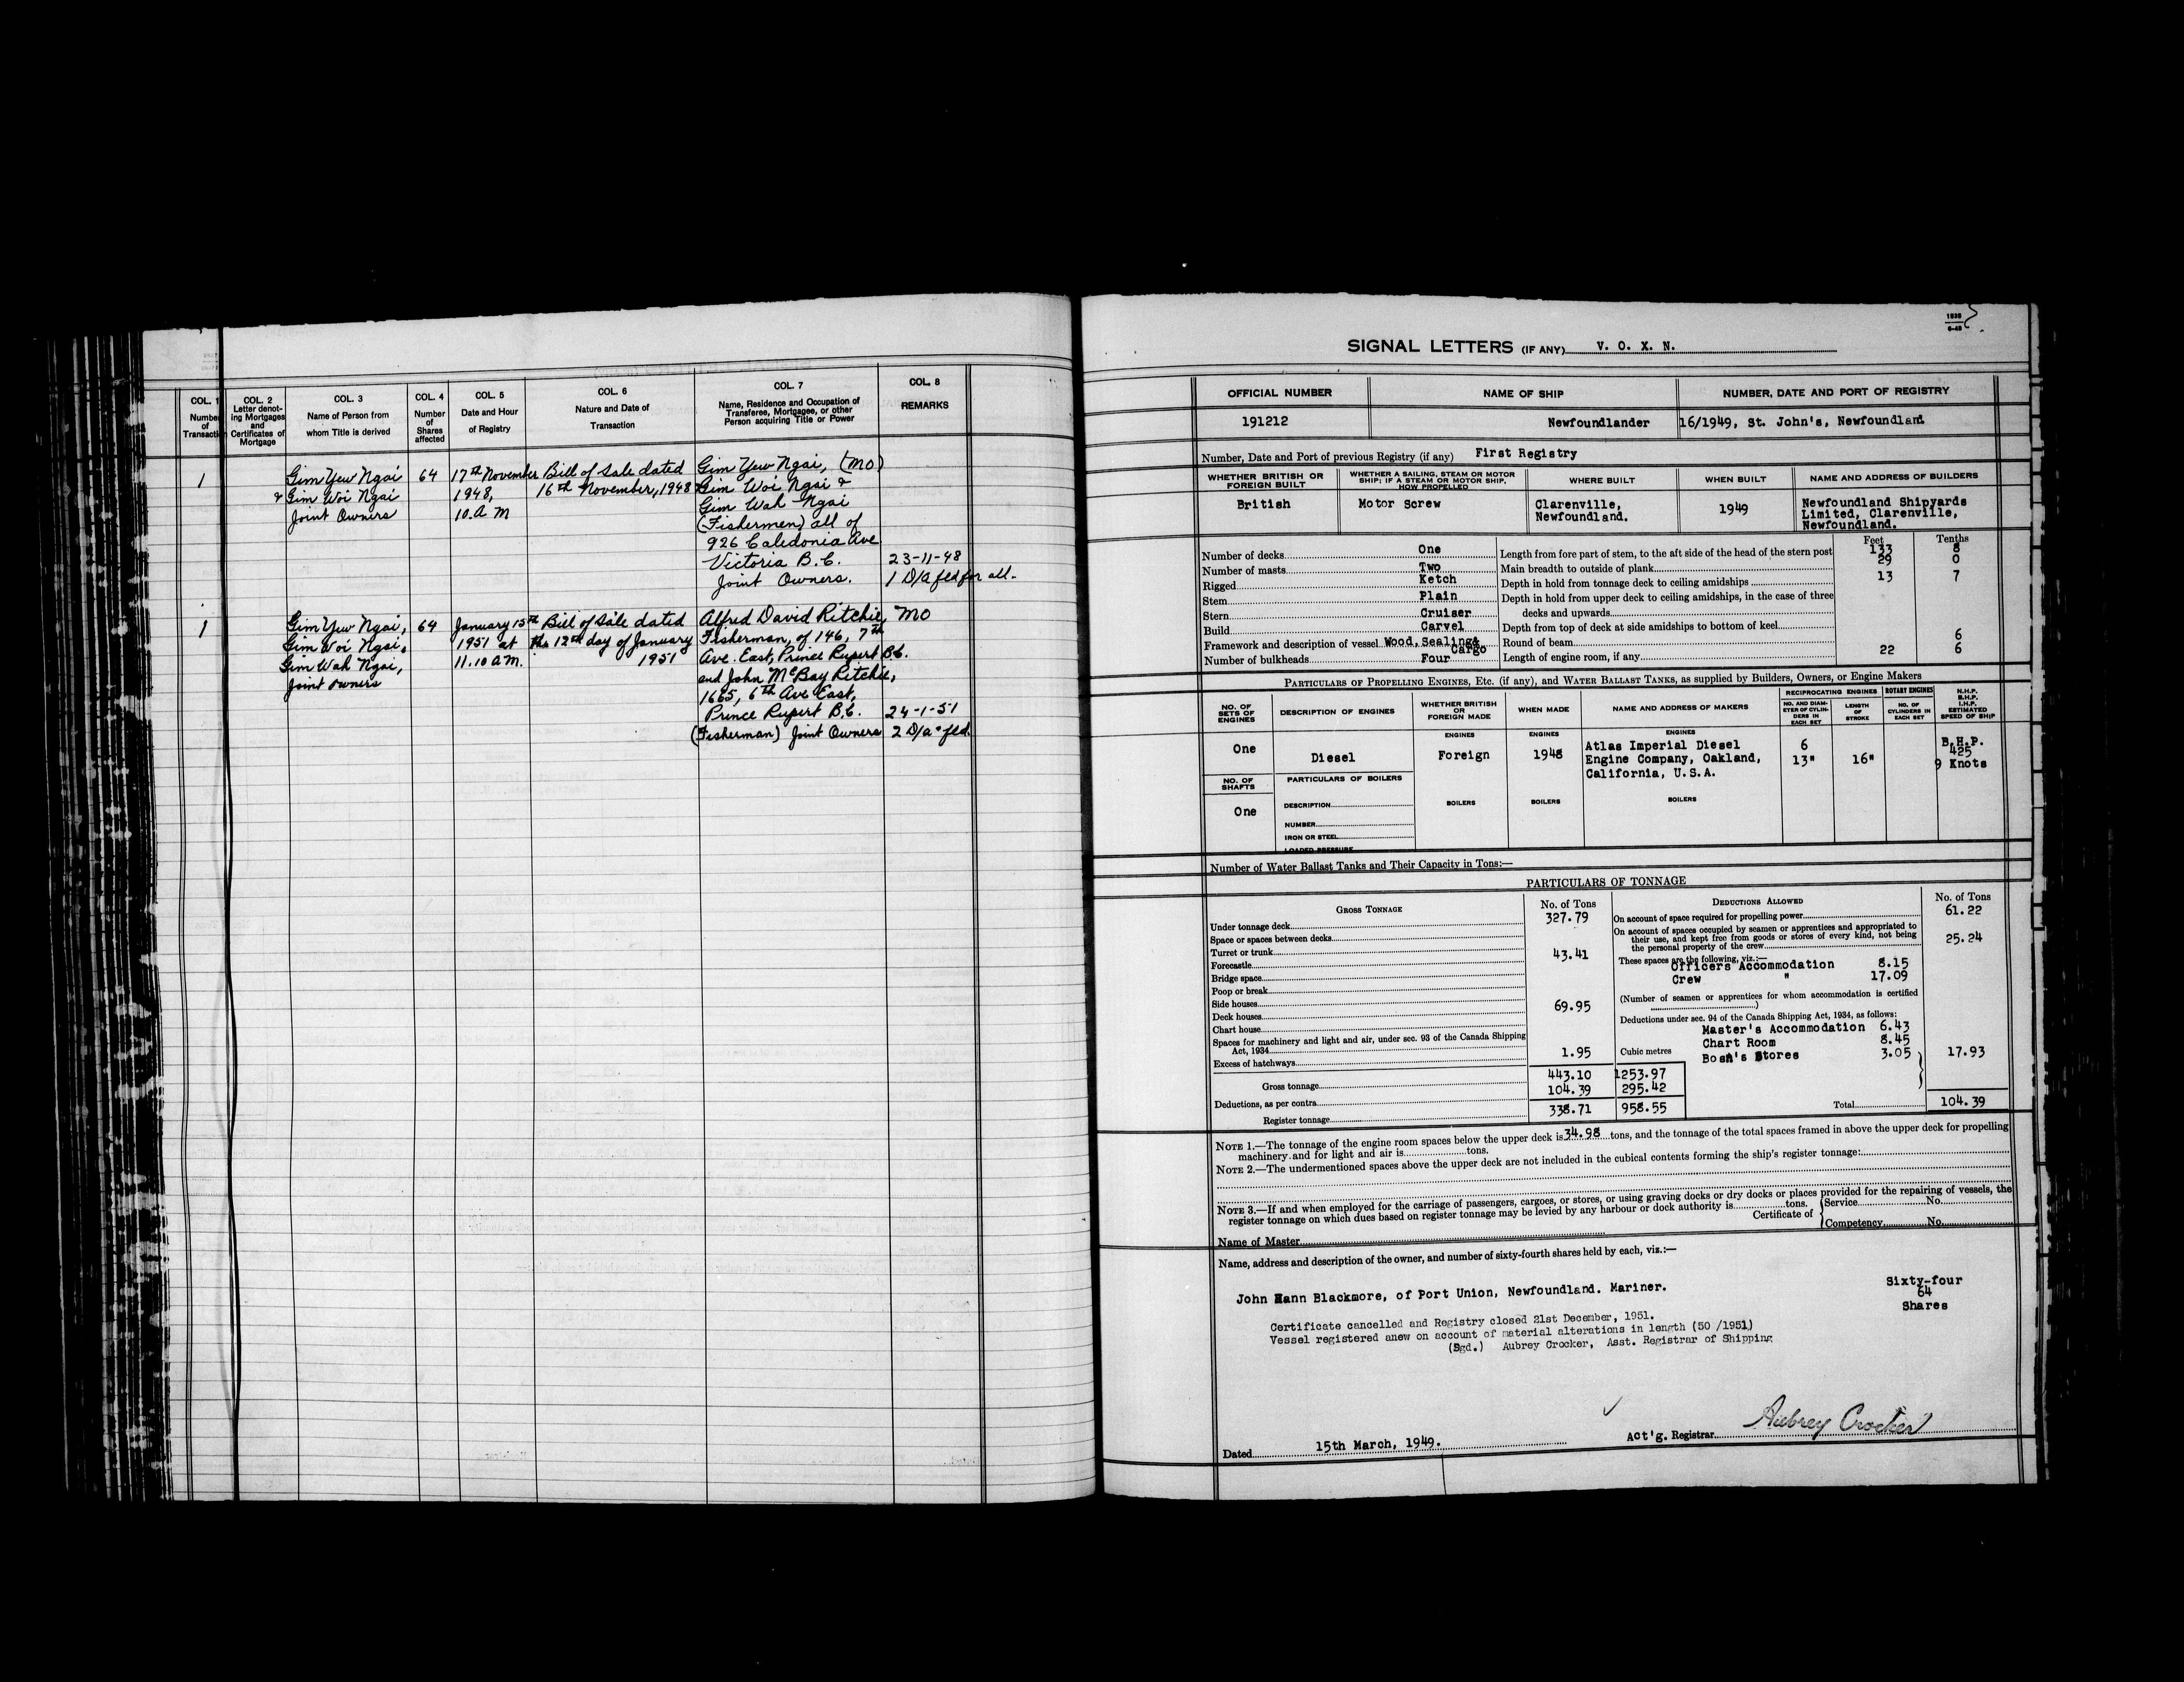 COL. 1
Number of Transaction
COL. 2
Letter denoting Mortgages and Certificates of Mortgage
COL. 3
Name of Person from whom Title is derived
COL. 4
Number of Shares affected
COL. 5
Date and Hour of Registry
COL. 6
Nature and Date of Transaction
COL. 7
Name, Residence and Occupation of Transferee, Mortgagee, or other Person acquiring Title or Power
COL. 8
REMARKS
1
Gim Yew Ngai
& Gim Woi Ngai
Joint Owners
64
17th November
1948,
10. A M
Bill of Sale dated
16th November, 1948
Gim Yew Ngai, (MO)
Gim Woi Ngai &
Gim Wah Ngai
(Fishermen) all of
926 Caledonia Ave
Victoria B.C.
Joint Owners.
23-11-48
1 D/a fld for all.
1
Gim Yew Ngai,
Gim Woi Ngai,
Gim Wah Ngai,
Joint owners
64
January 15th
1951 at
11.10 A.M.
Bill of Sale dated
the 12th day of January
1951
Alfred David Ritchie,
Fisherman, of 146, 7th
Ave. East, Prince Rupert B.C.
and John McBay Ritchie,
1665, 6th Ave East,
Prince Rupert B.C.
(Fisherman) Joint Owners
MO
24-1-51
2 D/a's fld.
SIGNAL LETTERS (IF ANY) V. O. X. N.
OFFICIAL NUMBER
NAME OF SHIP
NUMBER, DATE AND PORT OF REGISTRY
191212
Newfoundlander
16/1949, St. John's, Newfoundland
Number, Date and Port of previous Registry (if any) First Registry
WHETHER BRITISH OR FOREIGN BUILT
WHETHER A SAILING, STEAM OR MOTOR SHIP; IF A STEAM OR MOTOR SHIP, HOW PROPELLED
WHERE BUILT
WHEN BUILT
NAME AND ADDRESS OF BUILDERS
British
Motor Screw
Clarenville,
Newfoundland.
1949
Newfoundland Shipyards
Limited, Clarenville,
Newfoundland.
Feet
Tenths
Number of decks One
Number of masts Two
Rigged Ketch
Stem Plain
Stern Cruiser
Build Carvel
Framework and description of vessel Wood, Sealing & Cargo
Number of bulkheads Four
Length from fore part of stem, to the aft side of the head of the stern post 133 8
Main breadth to outside of plank 29 0
Depth in hold from tonnage deck to ceiling amidships 13 7
Depth in hold from upper deck to ceiling amidships, in the case of three
decks and upwards
Depth from top of deck at side amidships to bottom of keel
Round of beam 6
Length of engine room, if any 22 6
PARTICULARS OF PROPELLING ENGINES, ETC. (if any), and WATER BALLAST TANKS, as supplied by Builders, Owners, or Engine Makers
NO. OF SETS OF ENGINES
DESCRIPTION OF ENGINES
WHETHER BRITISH OR FOREIGN MADE
WHEN MADE
NAME AND ADDRESS OF MAKERS
RECIPROCATING ENGINES
NO. AND DIAMETER OF CYLINDERS IN EACH SET
LENGTH OF STROKE
ROTARY ENGINES
NO. OF CYLINDERS IN EACH SET
N.H.P.
B.H.P.
I.H.P.
ESTIMATED SPEED OF SHIP
ENGINES
ENGINES
ENGINES
One
Diesel
Foreign
1948
Atlas Imperial Diesel
Engine Company, Oakland,
California, U.S.A.
6
13"
16"
B.H.P.
425
9 Knots
NO. OF SHAFTS
One
PARTICULARS OF BOILERS
DESCRIPTION
NUMBER
IRON OR STEEL
LOADED PRESSURE
BOILERS
BOILERS
BOILERS
Number of Water Ballast Tanks and Their Capacity in Tons:—
PARTICULARS OF TONNAGE
GROSS TONNAGE
No. of Tons
Under tonnage deck 327.79
Space or spaces between decks
Turret or trunk
Forecastle 43.41
Bridge space
Poop or break
Side houses
Deck houses 69.95
Chart house
Spaces for machinery and light and air, under sec. 93 of the Canada Shipping
Act, 1934
Excess of hatchways 1.95
Cubic metres
Gross tonnage 443.10 1253.97
Deductions, as per contra 104.39 295.42
Register tonnage 338.71 958.55
DEDUCTIONS ALLOWED
No. of Tons
On account of space required for propelling power 61.22
On account of spaces occupied by seamen or apprentices and appropriated to
their use, and kept free from goods or stores of every kind, not being
the personal property of the crew 25.24
These spaces are the following, viz.:—
Officers Accommodation 8.15
Crew " 17.09
(Number of seamen or apprentices for whom accommodation is certified
)
Deductions under sec. 94 of the Canada Shipping Act, 1934, as follows:
Master's Accommodation 6.43
Chart Room 8.45
Bosn's Stores 3.05
17.93
Total 104.39
NOTE 1.—The tonnage of the engine room spaces below the upper deck is 34.98 tons, and the tonnage of the total spaces framed in above the upper deck for propelling
machinery and for light and air is tons.
NOTE 2.—The undermentioned spaces above the upper deck are not included in the cubical contents forming the ship's register tonnage:
NOTE 3.—If and when employed for the carriage of passengers, cargoes, or stores, or using graving docks or dry docks or places provided for the repairing of vessels, the
register tonnage on which dues based on register tonnage may be levied by any harbour or dock authority is tons.
Certificate of
Service No.
Competency No.
Name of Master
Name, address and description of the owner, and number of sixty-fourth shares held by each, viz.:—
John Hann Blackmore, of Port Union, Newfoundland. Mariner.
Sixty-four
64
Shares
Certificate cancelled and Registry closed 21st December, 1951.
Vessel registered anew on account of material alterations in length (50 /1951)
(Sgd.) Aubrey Crocker, Asst. Registrar of Shipping
Dated 15th March, 1949.
Act'g. Registrar Aubrey Crocker